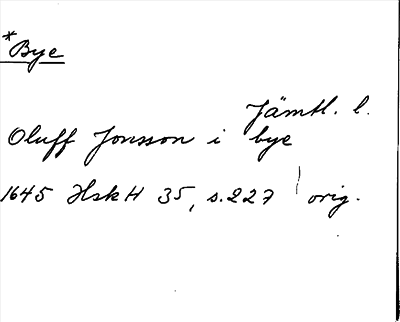 *Bye
Jämtl. l.
Oluff Jonsson i bye
1645 HskH 35, s.227 orig.